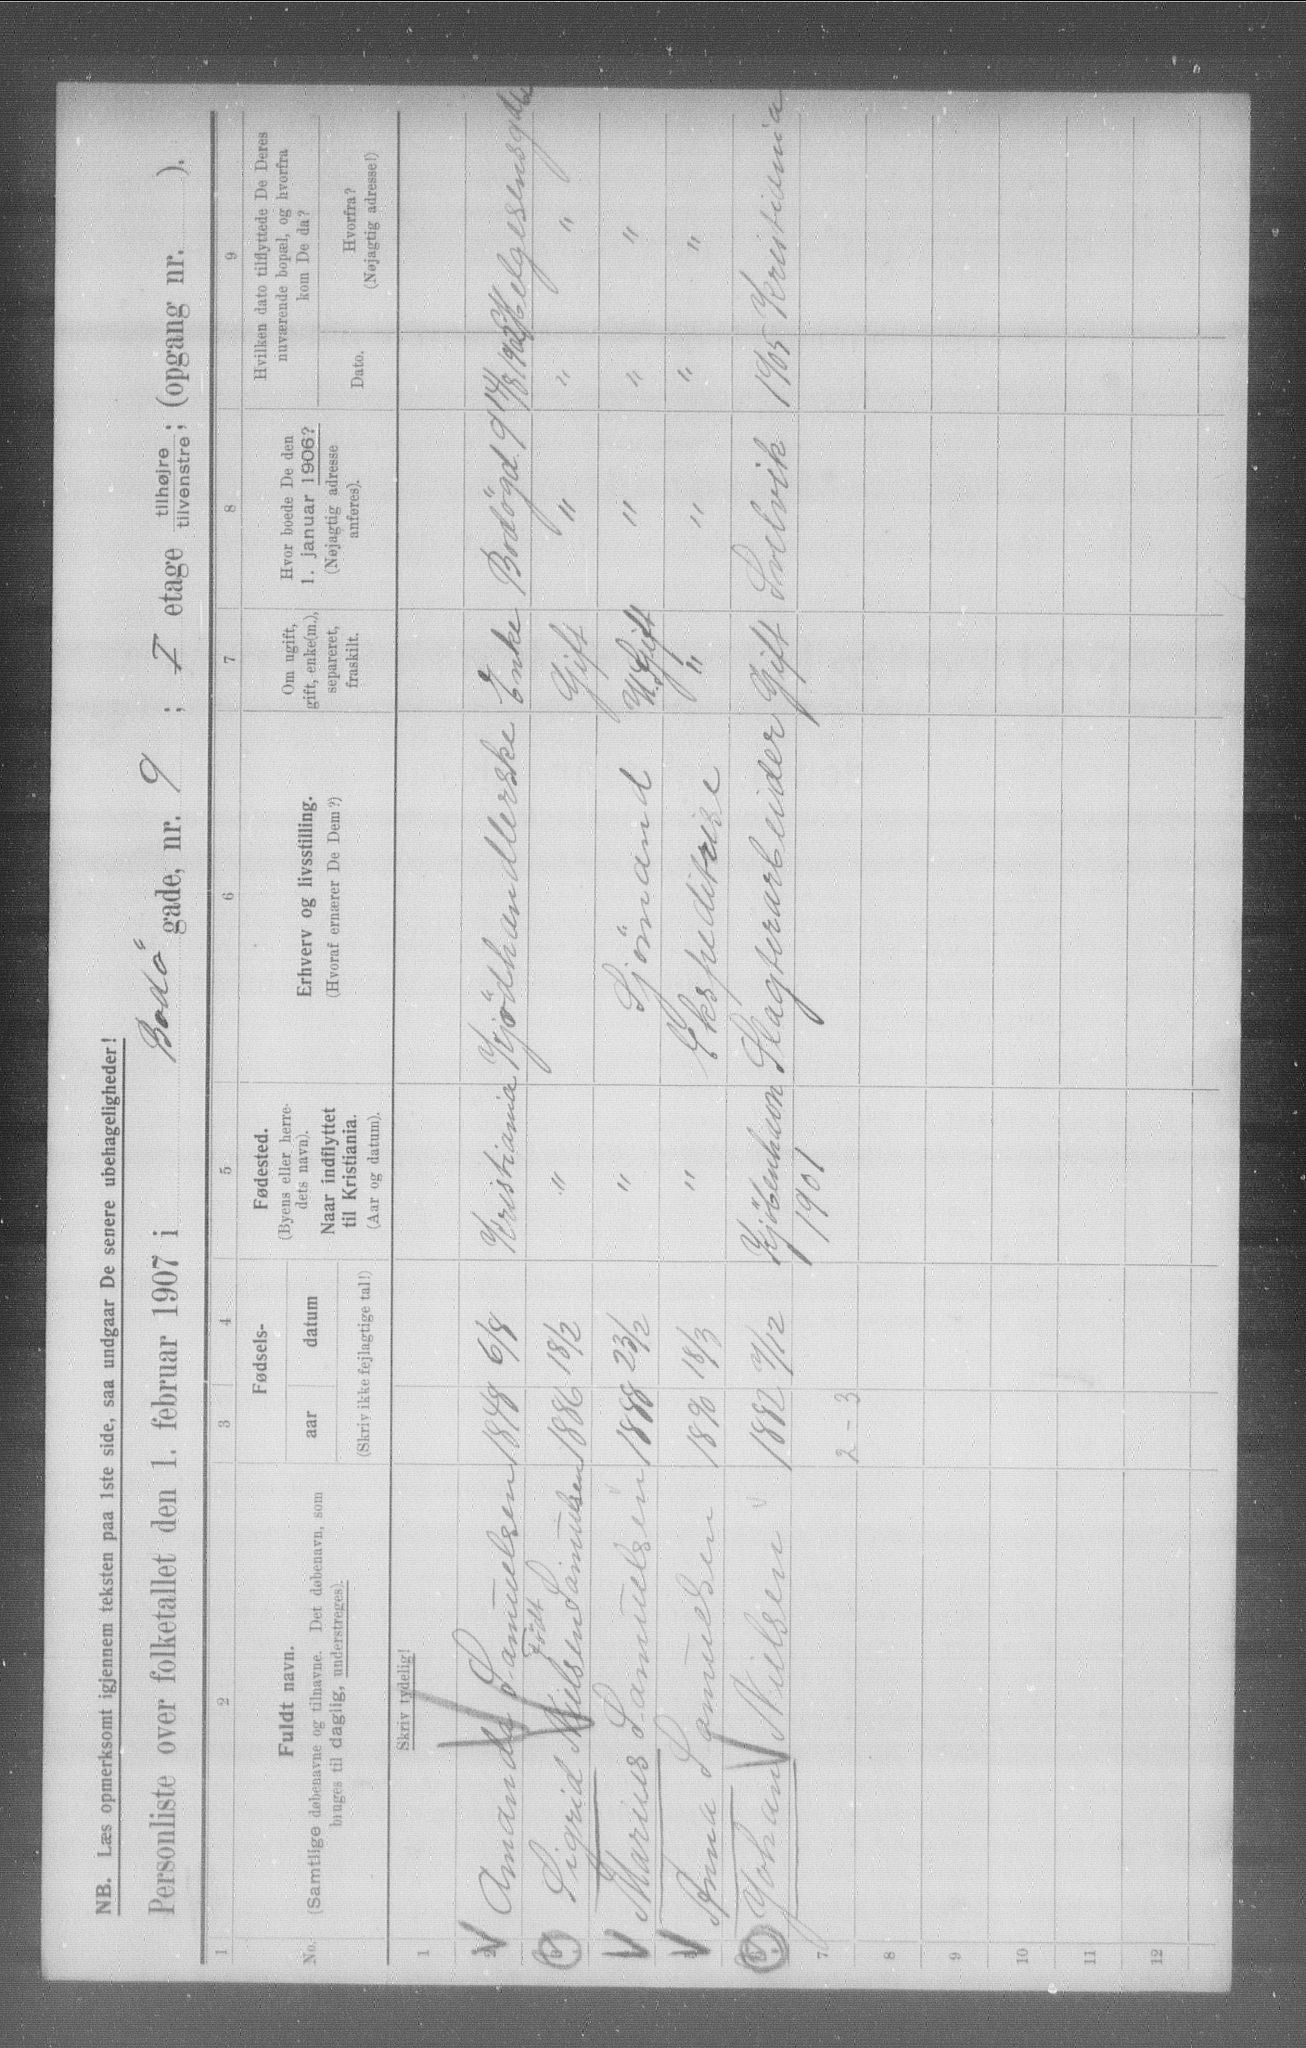 NB. Læs opmerksomt igjennem teksten paa 1ste side, saa undgaar De senere ubehageligheder!
Personliste over folketallet den 1. februar 1907 i Bodö gade, nr. 9 ; I etage tilhøjre tilvenstre; (opgang nr. ).
1 2 3 4 5 6 7 8 9
No. Fuldt navn. (Samtlige døbenavne og tilnavne. Det døbenavn, som bruges til daglig, understreges).
Fødsels- aar datum (Skriv ikke fejlagtige tal!)
Fødested. (Byens eller herredets navn). Naar indflyttet til Kristiania. (Aar og datum).
Erhverv og livsstilling. (Hvoraf ernærer De Dem?)
Om ugift, gift, enke(m.), separeret, fraskilt.
Hvor boede De den 1. januar 1906? (Nøjagtig adresse anføres).
Hvilken dato tilflyttede De Deres nuværende bopæl, og hvorfra kom De da?
Dato. Hvorfra? (Nøjagtig adresse!)
Skriv tydelig!
1
2 Amanda Samuelsen 1848 6/8 Kristiania Kjödhandlerske Enke Bodögd. 9 14/8 1902 Helgesensgd
Sigrid Nielsen Födt Samuelsen 1886 18/2 " Gift " " "
Marius Samuelsen 1888 23/2 " Sjömand U.Gift " " "
Anna Samuelsen 1890 18/3 " Ekspeditrise " " " "
Johan Nielsen 1882 /12 Kjöbenhavn 1901 Slagterarbeider Gift Svelvik Kristiania
7
2 - 3
8
9
10
11
12